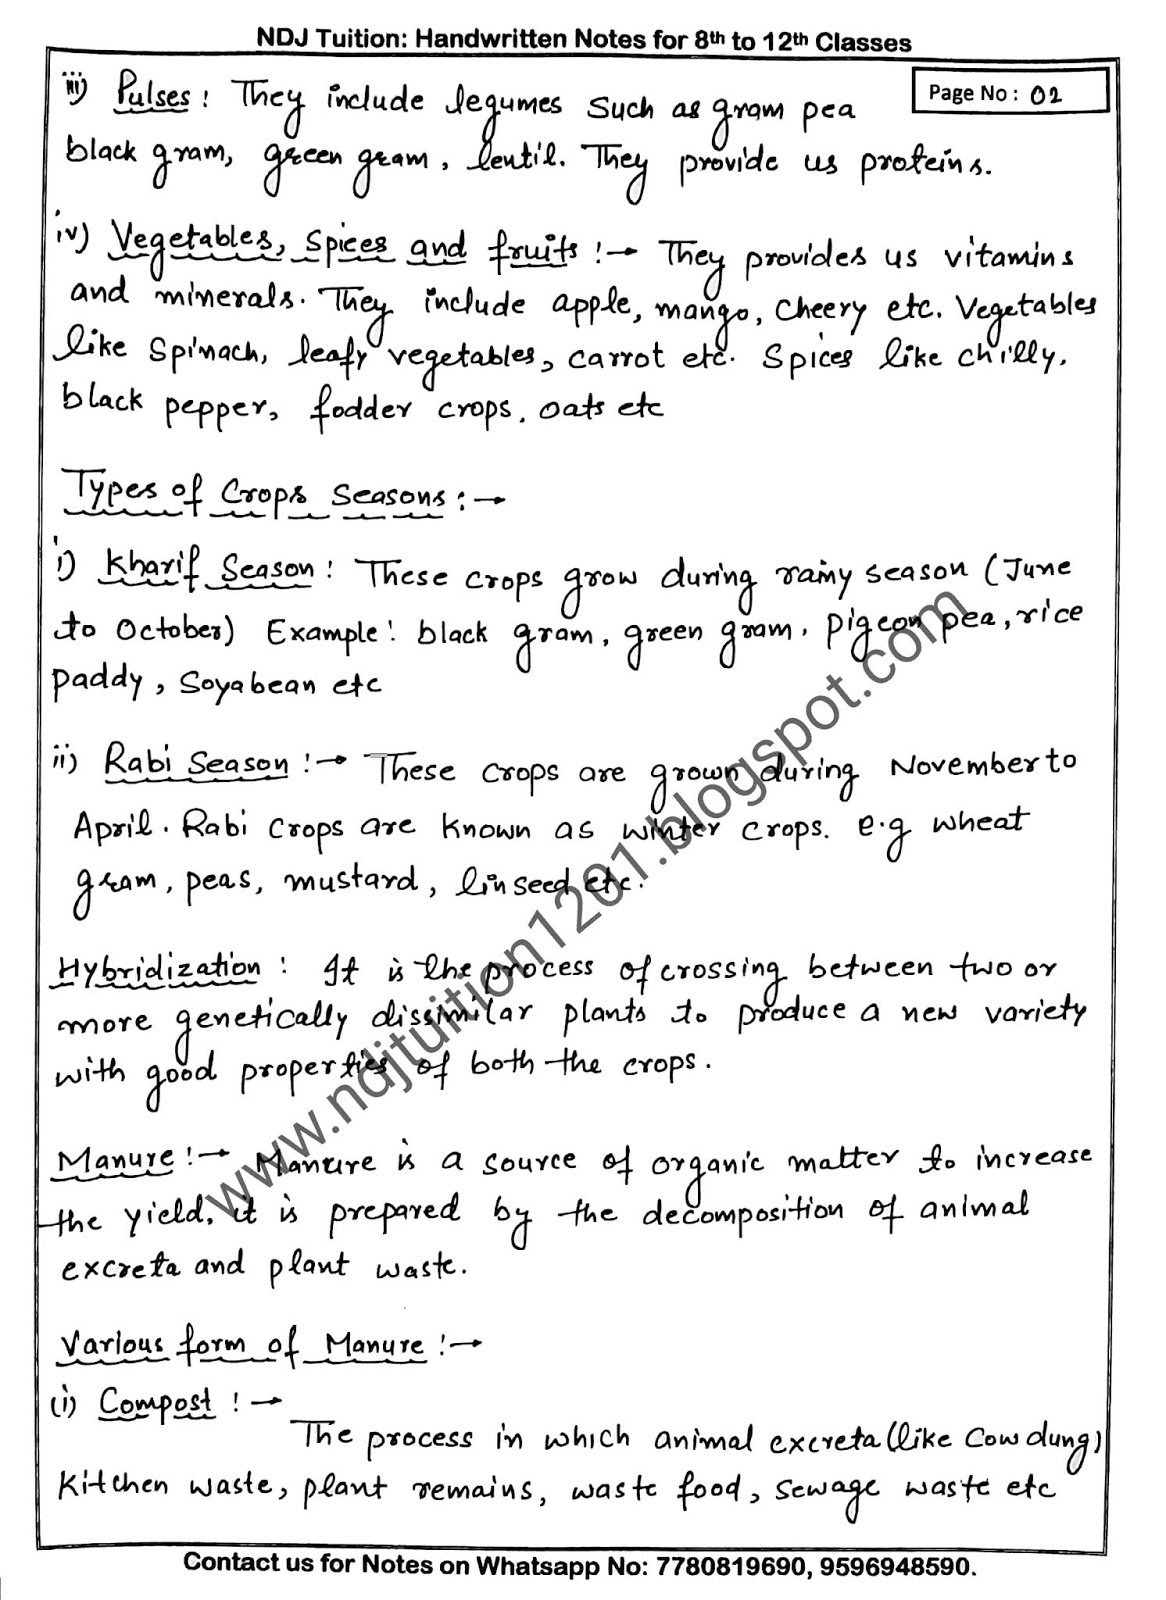 NDJ Tuition: Handwritten Notes for 8th to 12th Classes
Page No : 02
iii) Pulses : They include legumes such as gram pea
black gram, green gram, lentil. They provide us proteins.
iv) Vegetables, Spices and fruits :→ They provides us vitamins
and minerals. They include apple, mango, Cheery etc. Vegetables
like Spinach, leafy vegetables, carrot etc. Spices like chilly,
black pepper, fodder crops, oats etc
Types of Crops Seasons :→
i) Kharif Season : These crops grow during rainy season (June
to October) Example : black gram, green gram, pigeon pea, rice
paddy, Soyabean etc
ii) Rabi Season :→ These crops are grown during November to
April. Rabi crops are known as winter crops. e.g wheat
gram, peas, mustard, linseed etc.
Hybridization : It is the process of crossing between two or
more genetically dissimilar plants to produce a new variety
with good properties of both the crops.
Manure :→ Manure is a source of organic matter to increase
the yield. it is prepared by the decomposition of animal
excreta and plant waste.
Various form of Manure :→
(i) Compost :→
The process in which animal excreta (like Cow dung)
Kitchen waste, plant remains, waste food, sewage waste etc
www.ndjtuition1201.blogspot.com
Contact us for Notes on Whatsapp No: 7780819690, 9596948590.